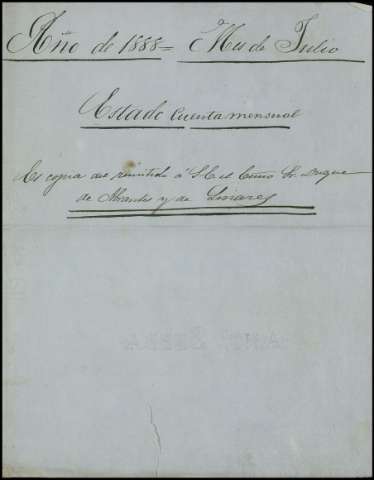 Año de 1888 = Mes de Julio
Estado Cuenta mensual
Es copia del remitido á S.E. el Exmo Sr. Duque
de Abrantes y de Linares